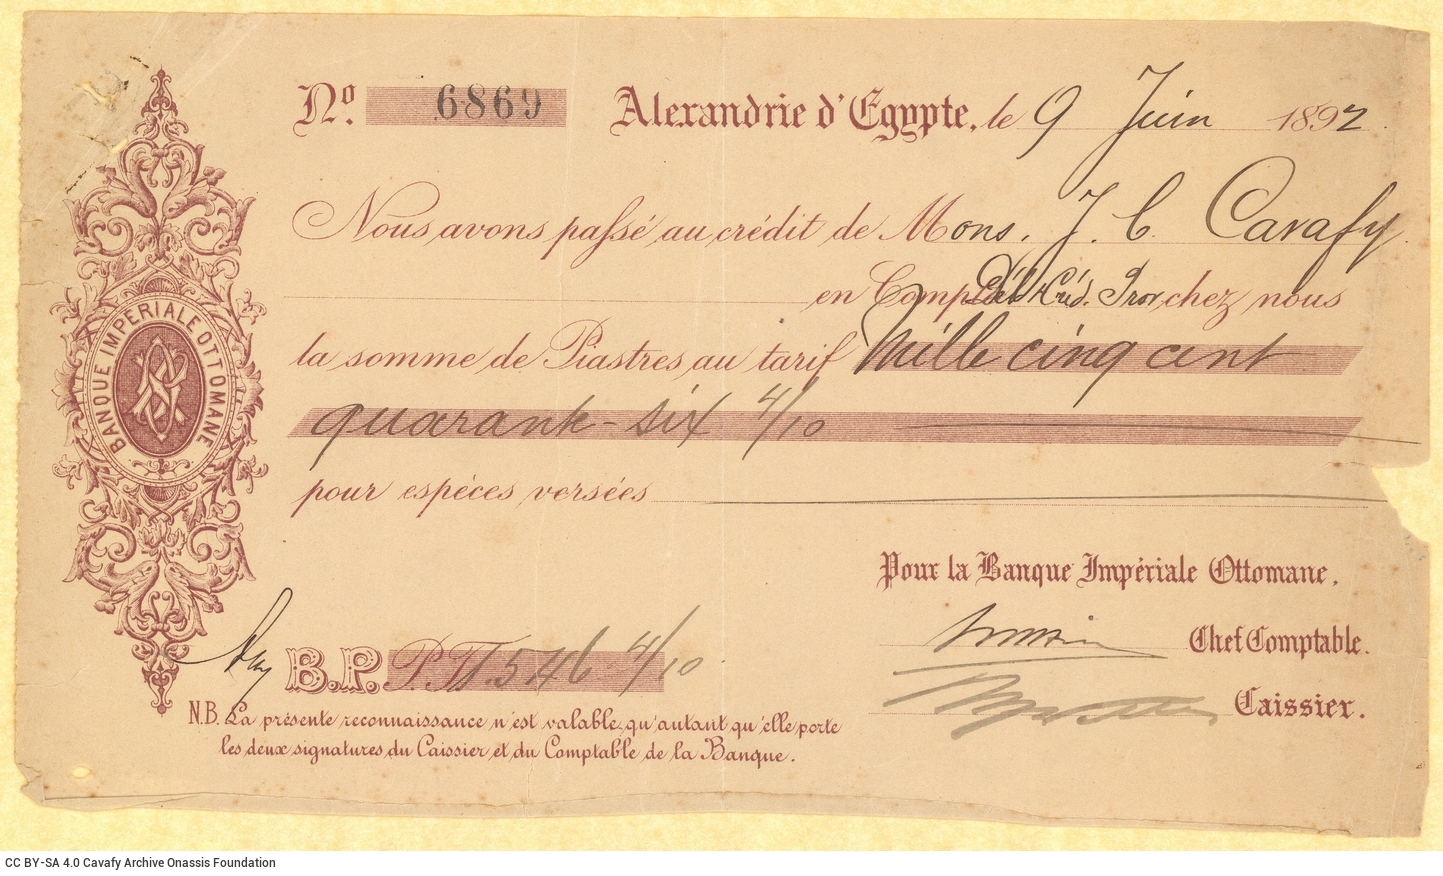 Nº. 6869 Alexandrie d'Egypte, le 9 Juin 1892
Nous avons passé au crédit de Mons. J. C. Cavafy
en Compte Déb. Créd. Prov. chez nous
la somme de Piastres au tarif Mille cinq cent
quarante-six 4/10
pour espèces versées
BANQUE IMPERIALE OTTOMANE
Pour la Banque Impériale Ottomane,
Chef Comptable.
B.P. P.T. 1546 4/10
Caissier.
N.B. La présente reconnaissance n'est valable qu'autant qu'elle porte
les deux signatures du Caissier et du Comptable de la Banque.
CC BY-SA 4.0 Cavafy Archive Onassis Foundation